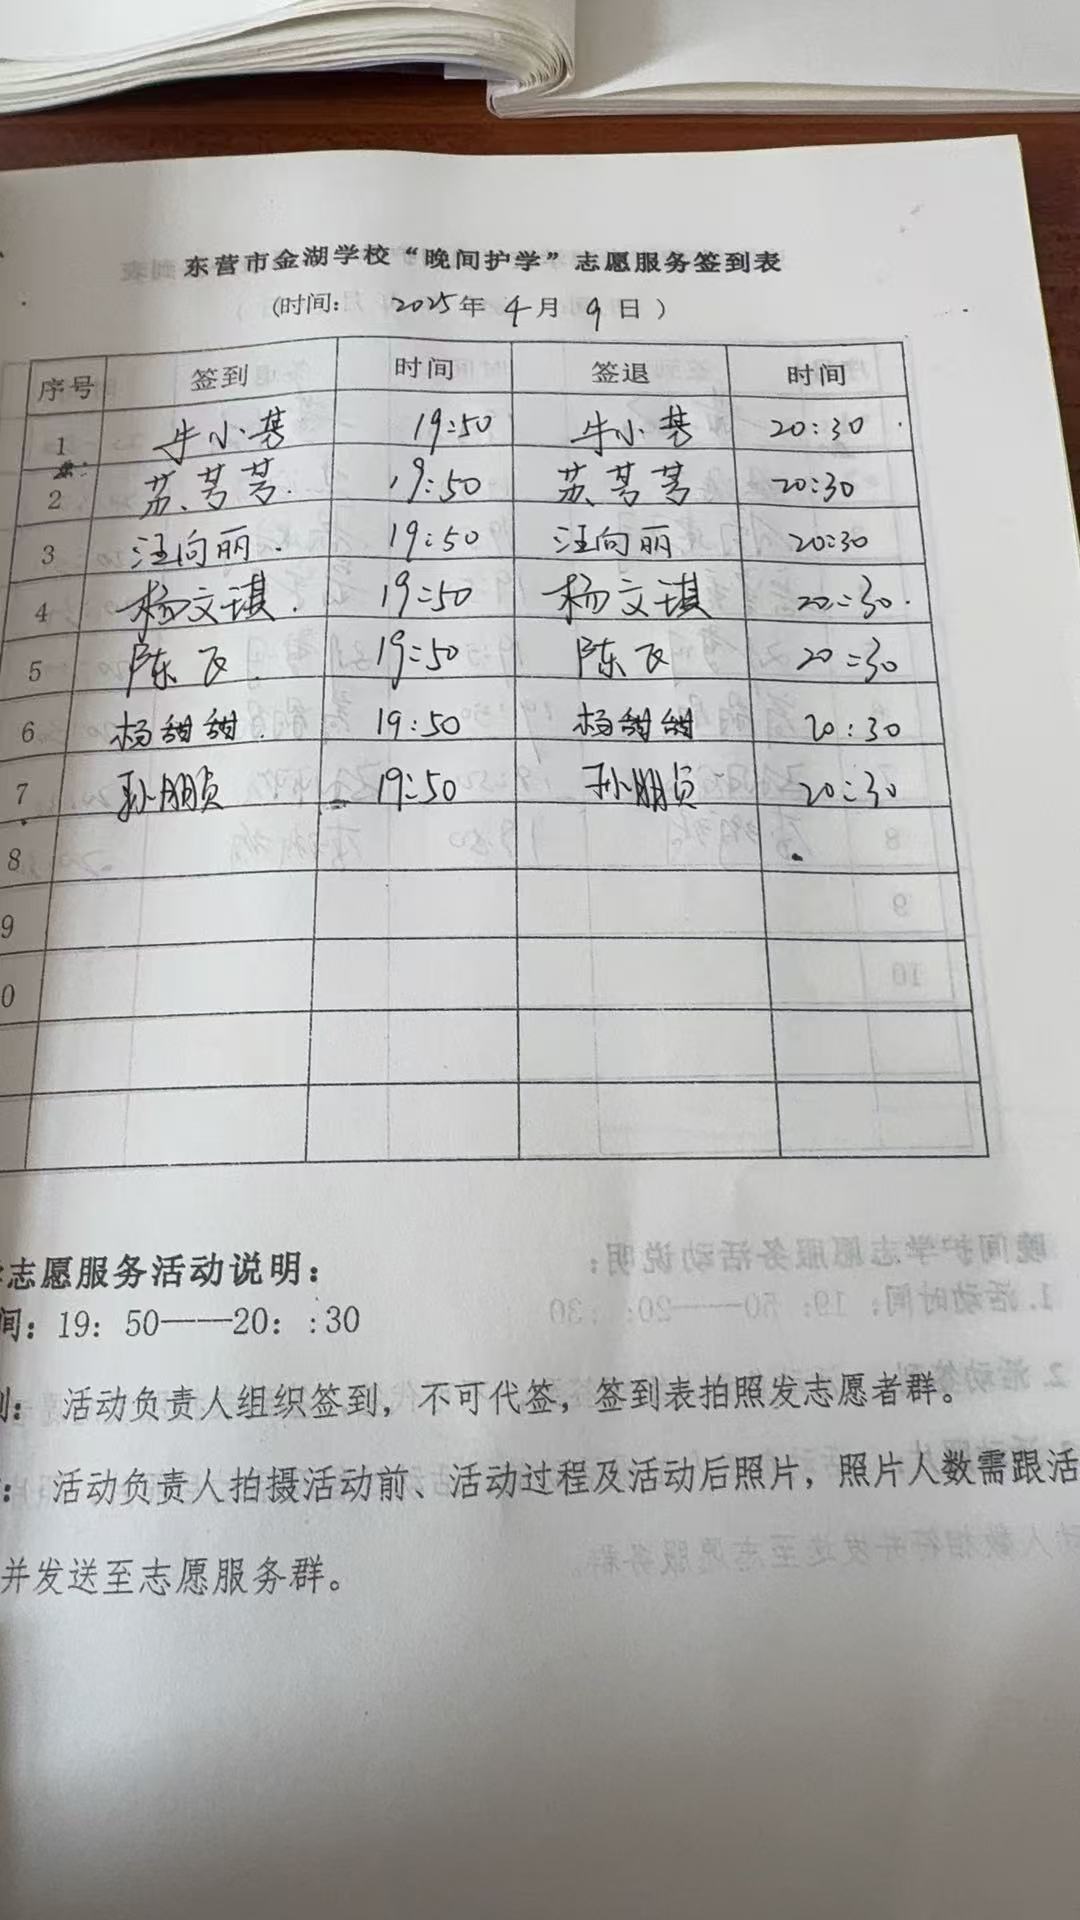 东营市金湖学校“晚间护学”志愿服务签到表
(时间: 2025年 4月 9日 )
序号 签到 时间 签退 时间
1 牛小 19:50 牛小 20:30
2 苏 19:50 苏 20:30
3 汪向丽 19:50 汪向丽 20:30
4 杨文琪 19:50 杨文琪 20:30
5 陈 19:50 陈 20:30
6 杨甜甜 19:50 杨甜甜 20:30
7 孙鹏员 19:50 孙鹏员 20:30
8
9
0
志愿服务活动说明:
间: 19: 50——20: :30
到: 活动负责人组织签到, 不可代签, 签到表拍照发志愿者群。
: 活动负责人拍摄活动前、活动过程及活动后照片, 照片人数需跟活
并发送至志愿服务群。